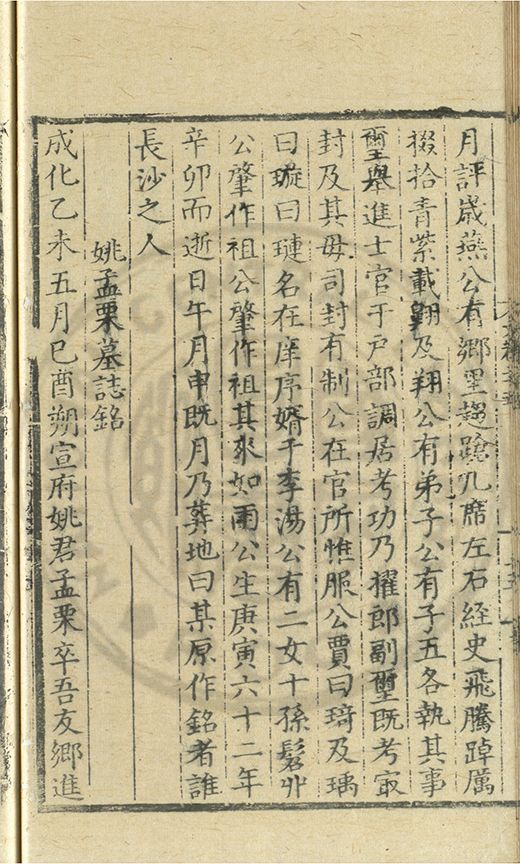 月評歲燕公有鄉望趨蹌几席左右経史飛騰踔厲
掇拾青紫載翱及翔公有弟子公有子五各執其事
璽舉進士官于戸部調居考功乃擢郎副璽既考㝡
封及其毋司封有制公在官所惟服公賈曰琦及瑀
曰璇曰璉名在庠序婿于李湯公有二女十孫髫丱
公肇作祖公肇作祖其來如雨公生庚寅六十二年
辛卯而逝日午月申既月乃葬地曰某原作銘者誰
長沙之人
姚孟栗墓誌銘
成化乙未五月巳酉朔宣府姚君孟栗卒吾友鄉進